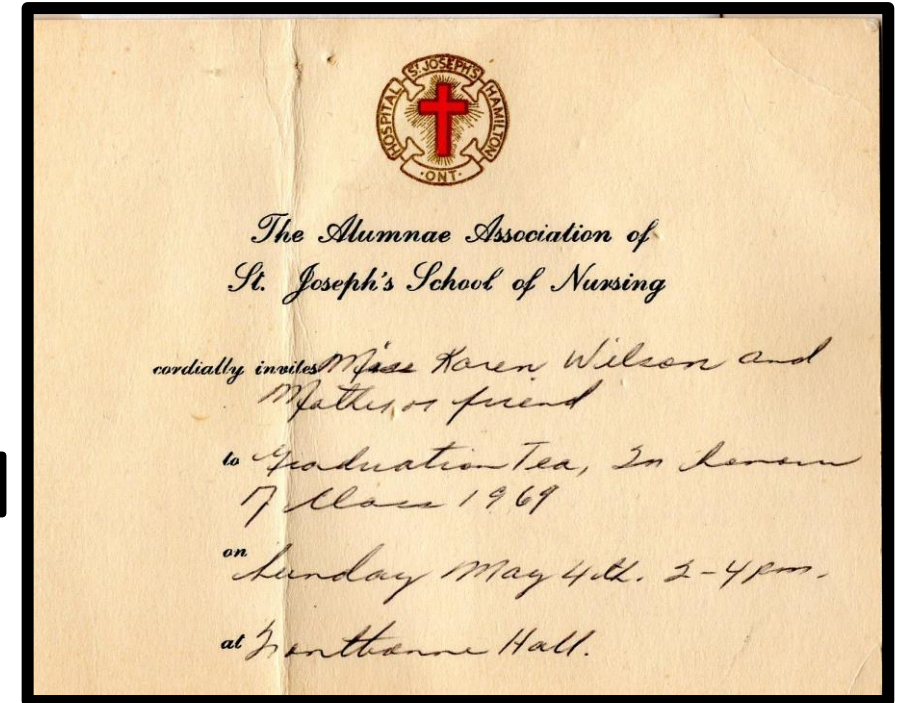 HOSPITAL ST. JOSEPH'S HAMILTON
·ONT·
The Alumnae Association of
St. Joseph's School of Nursing
cordially invites Miss Karen Wilson and
Mother or friend
to Graduation Tea, In honour
of Class 1969
on Sunday May 4th. 2-4 pm.
at Fontbonne Hall.